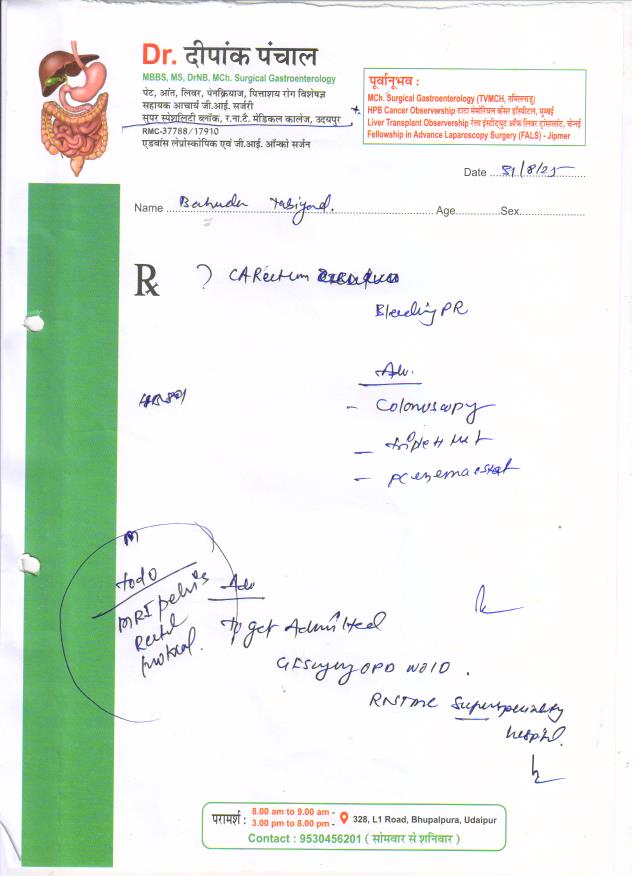 Dr. दीपांक पंचाल
MBBS, MS, DrNB, MCh. Surgical Gastroenterology
पेट, आंत, लिवर, पेनक्रियाज, पित्ताशय रोग विशेषज्ञ
सहायक आचार्य जी.आई. सर्जरी
सुपर स्पेशलिटी ब्लॉक, र.ना.टै. मेडिकल कालेज, उदयपुर
RMC-37788/17910
एडवांस लेप्रोस्कोपिक एवं जी.आई. ऑन्को सर्जन
पूर्वानुभव :
MCh. Surgical Gastroenterology (TVMCH, तमिलनाडु)
HPB Cancer Observership टाटा मेमोरियल कैंसर हॉस्पीटल, मुम्बई
Liver Transplant Observership रेला इंस्टीट्यूट ऑफ लिवर ट्रांसप्लांट, चेन्नई
Fellowship in Advance Laparoscopy Surgery (FALS) - Jipmer
Date 31/8/25
Name Age Sex
Rx ? CA Rectum
Bleeding PR
Adv.
- Colonoscopy
-
- PC enema
todo
MRI pelvis
Rectal
protocol.
Adv
To get Admitted
GI Surgery OPD
RNTMC Superspeciality
hospital.
परामर्श : 8.00 am to 9.00 am -
3.00 pm to 8.00 pm - 328, L1 Road, Bhupalpura, Udaipur
Contact : 9530456201 ( सोमवार से शनिवार )